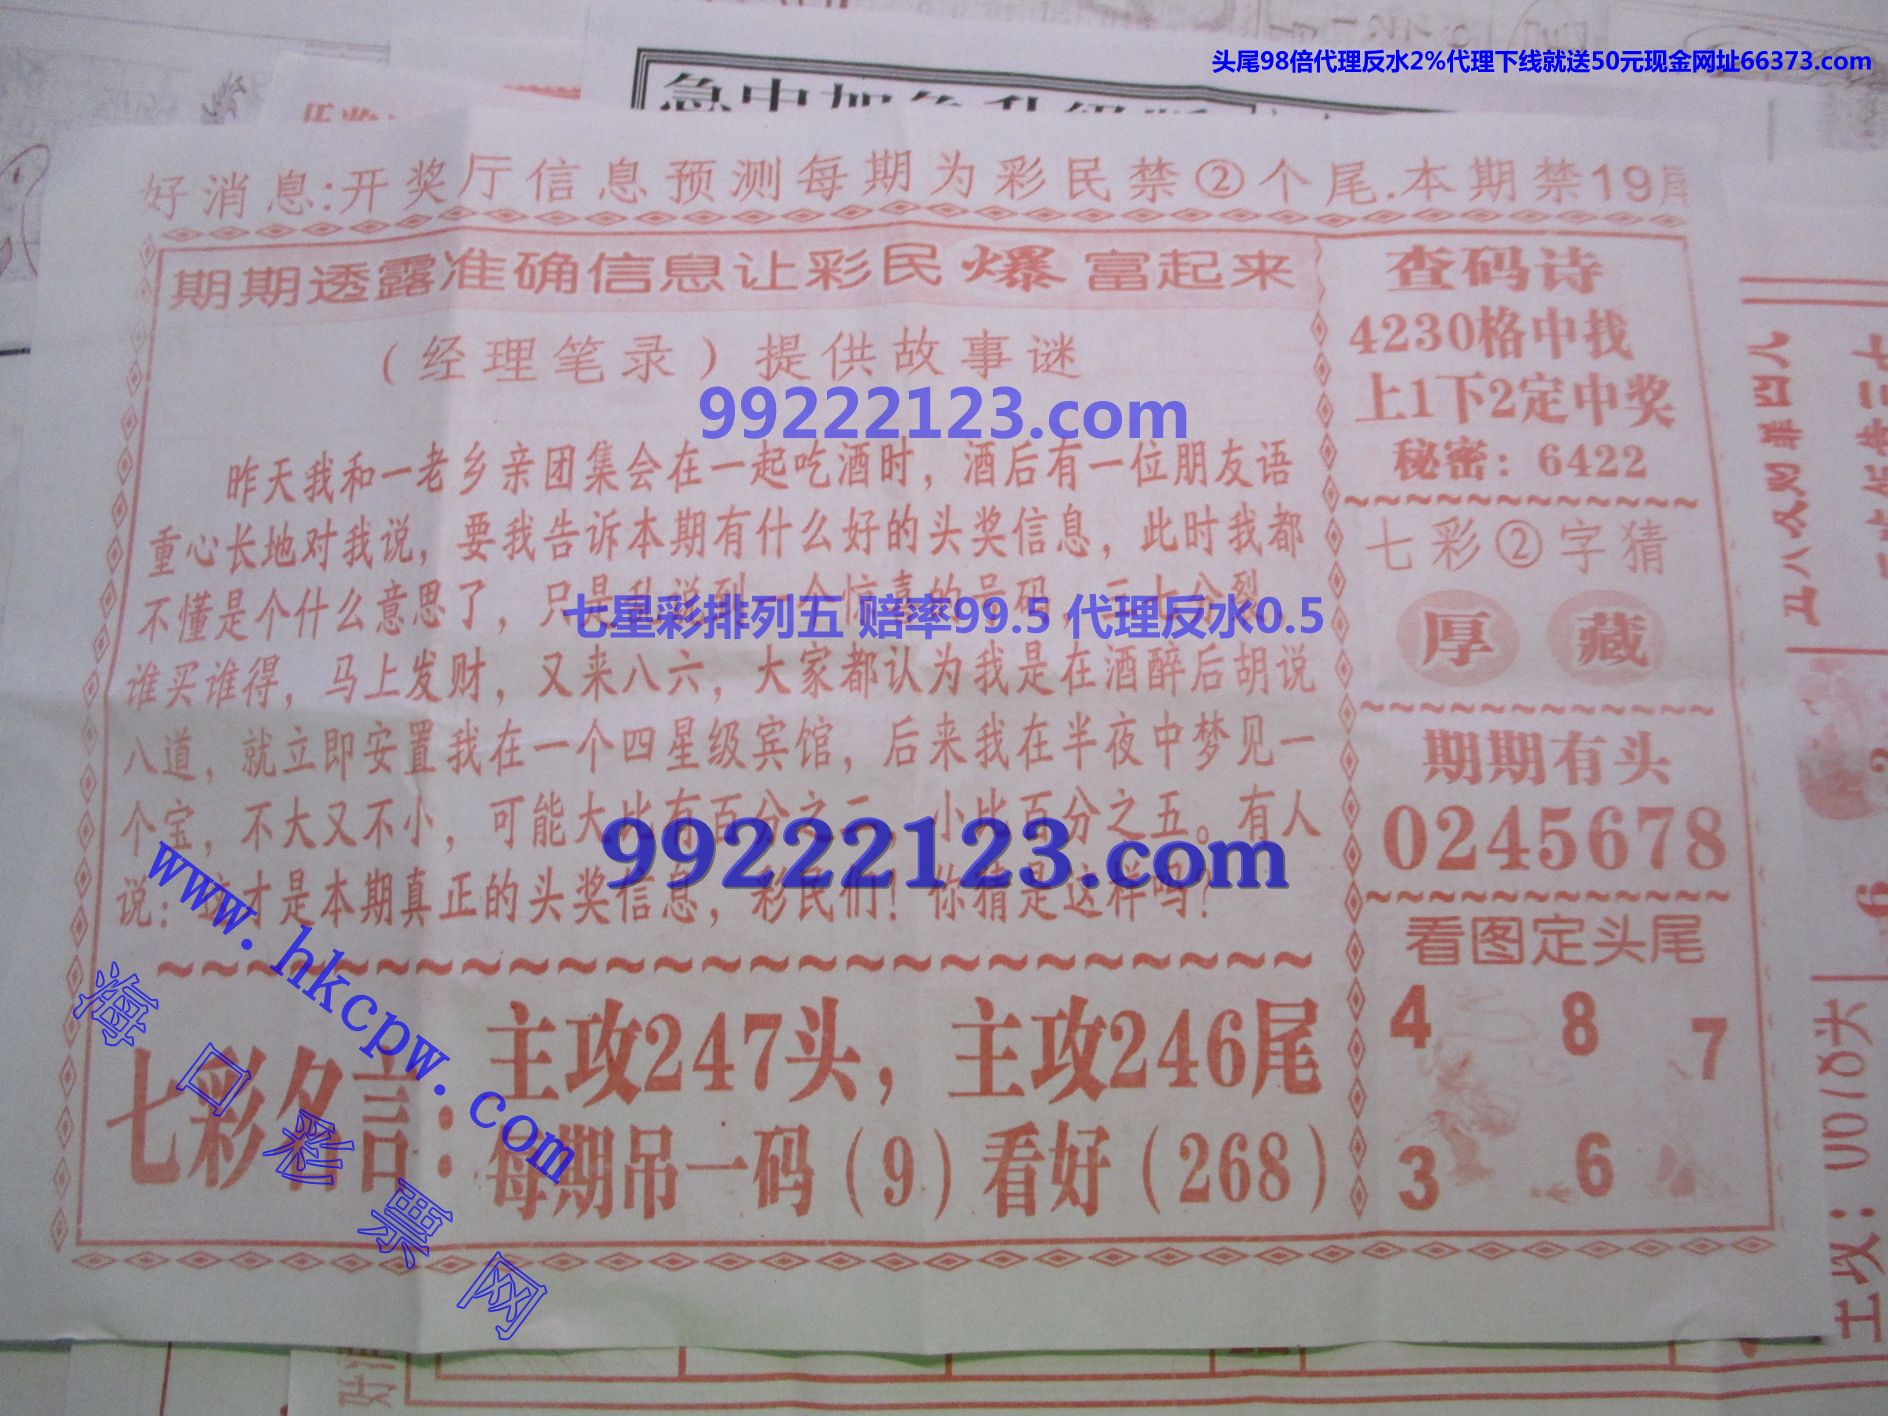 头尾98倍代理反水2%代理下线就送50元现金网址66373.com
好消息:开奖厅信息预测每期为彩民禁②个尾.本期禁19尾
期期透露准确信息让彩民爆富起来
(经理笔录)提供故事谜
99222123.com
昨天我和一老乡亲团集会在一起吃酒时，酒后有一位朋友语
重心长地对我说，要我告诉本期有什么好的头奖信息，此时我都
不懂是个什么意思了，只是乱说到一个惊喜的号码，三七分裂，
七星彩排列五 赔率99.5 代理反水0.5
谁买谁得，马上发财，又来八六，大家都认为我是在酒醉后胡说
八道，就立即安置我在一个四星级宾馆，后来我在半夜中梦见一
个宝，不大又不小，可能大比有百分之二，小比百分之五。有人
99222123.com
说：这才是本期真正的头奖信息，彩民们！你猜是这样吗？
www.hkcpw.com
海口彩票网
七彩名言：
主攻247头，主攻246尾
每期吊一码（9）看好（268）
查码诗
4230格中找
上1下2定中奖
秘密：6422
七彩②字猜
厚 藏
期期有头
0245678
看图定头尾
4 8 7
3 6